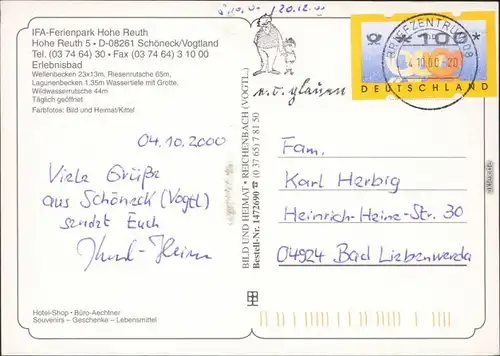 IFA-Ferienpark Hohe Reuth
Hohe Reuth 5 • D-08261 Schöneck/Vogtland
Tel. (03 74 64) 30 • Fax (03 74 64) 3 10 00
Erlebnisbad
Wellenbecken 23x13m, Riesenrutsche 65m,
Lagunenbecken 1,35m Wassertiefe mit Grotte,
Wildwasserrutsche 44m
Täglich geöffnet
Farbfotos: Bild und Heimat/Kittel
04.10.2000
Viele Grüße
aus Schöneck (Vogtl)
sendet Euch
Hotel-Shop • Büro-Aechtner
Souvenirs – Geschenke – Lebensmittel
BILD UND HEIMAT • REICHENBACH (VOGTL.)
Bestell-Nr. 1472690 ☎ (0 37 65) 7 81 50
20.12.
BRIEFZENTRUM 08
4.10.00-20
*100
DEUTSCHLAND
Fam.
Karl Herbig
Heinrich-Heine-Str. 30
04924 Bad Liebenwerda